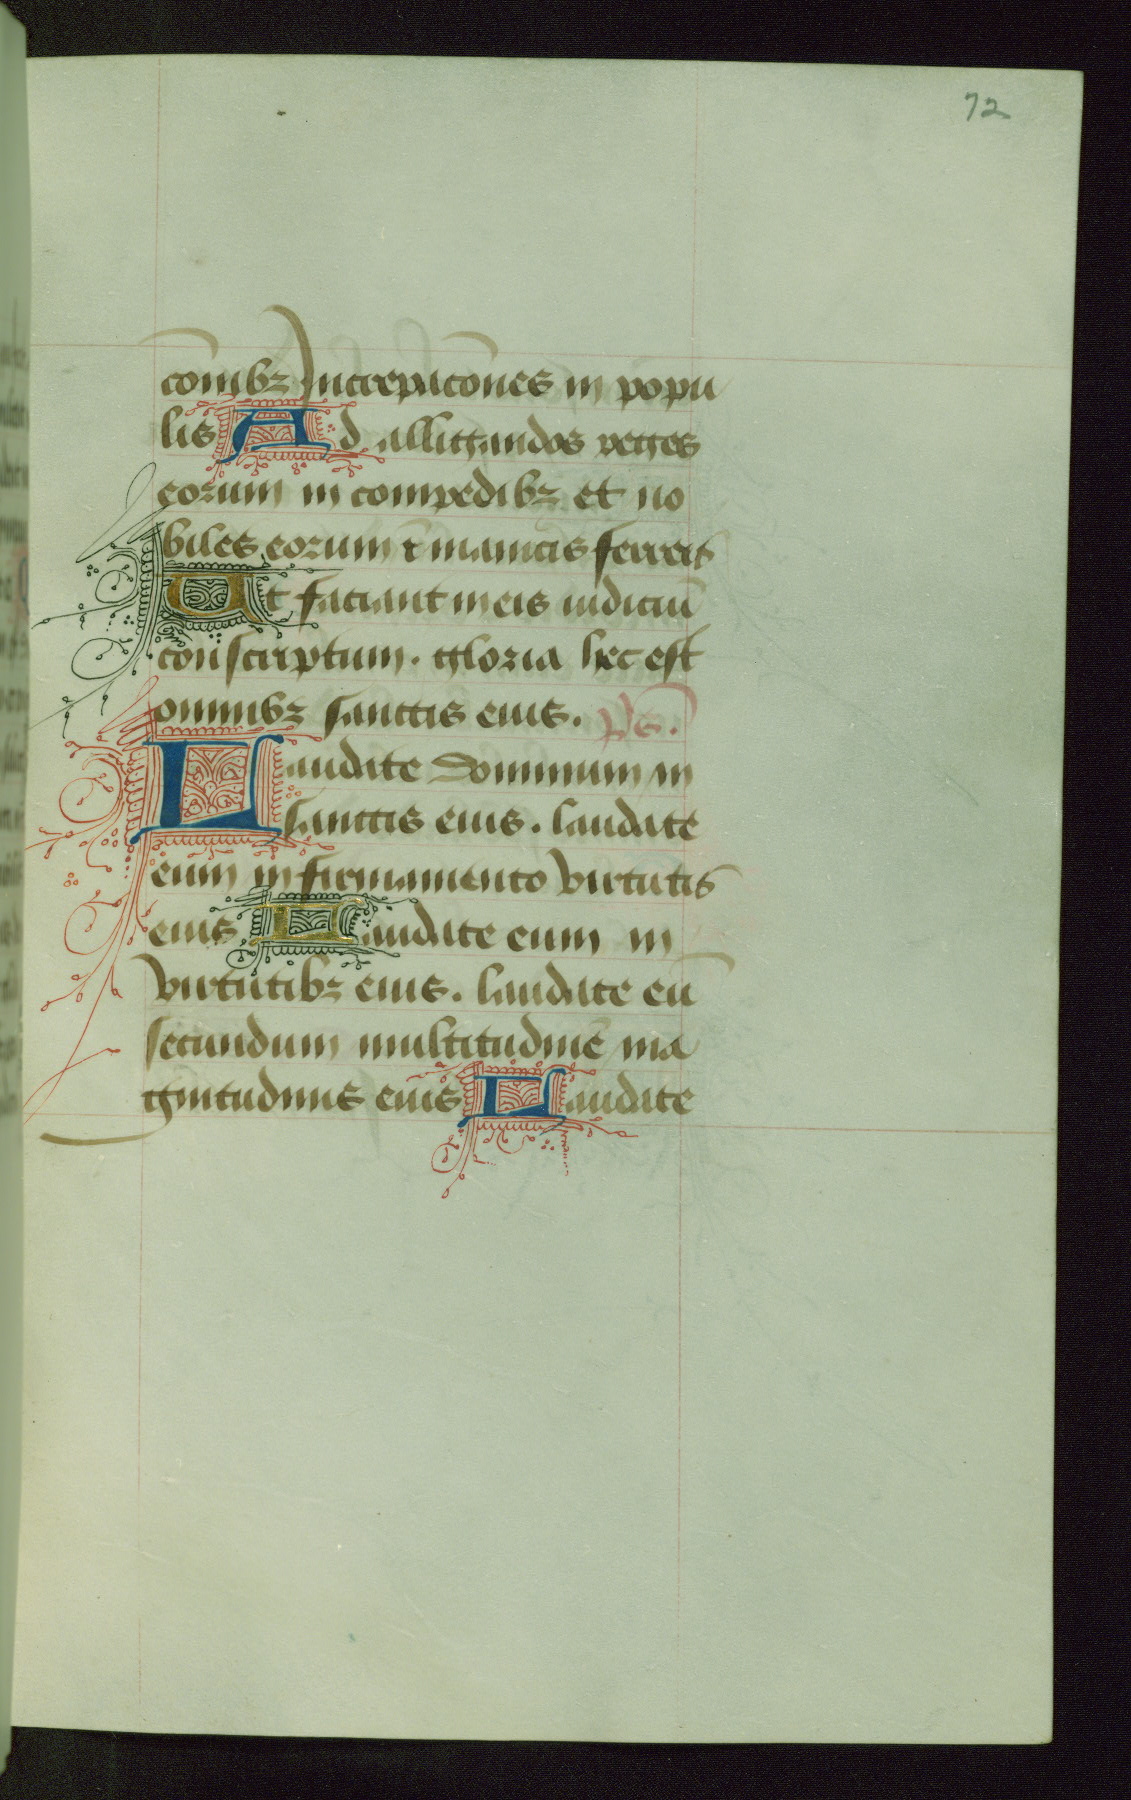 72
cōnibꝫ Increpacōnes in popu
lis Ad alligandos reges
eorum in compedibꝫ et no
biles eorum ī manicis ferreis
Ut faciant in eis iudiciū
conscriptum. gloria hec est
omnibꝫ sanctis eius. Ps.
Laudate dominum in
sanctis eius. laudate
eum in firmamento virtutis
eius Laudate eum in
virtutibꝫ eius. laudate eū
secundum multitudinē ma
gnitudinis eius Laudate